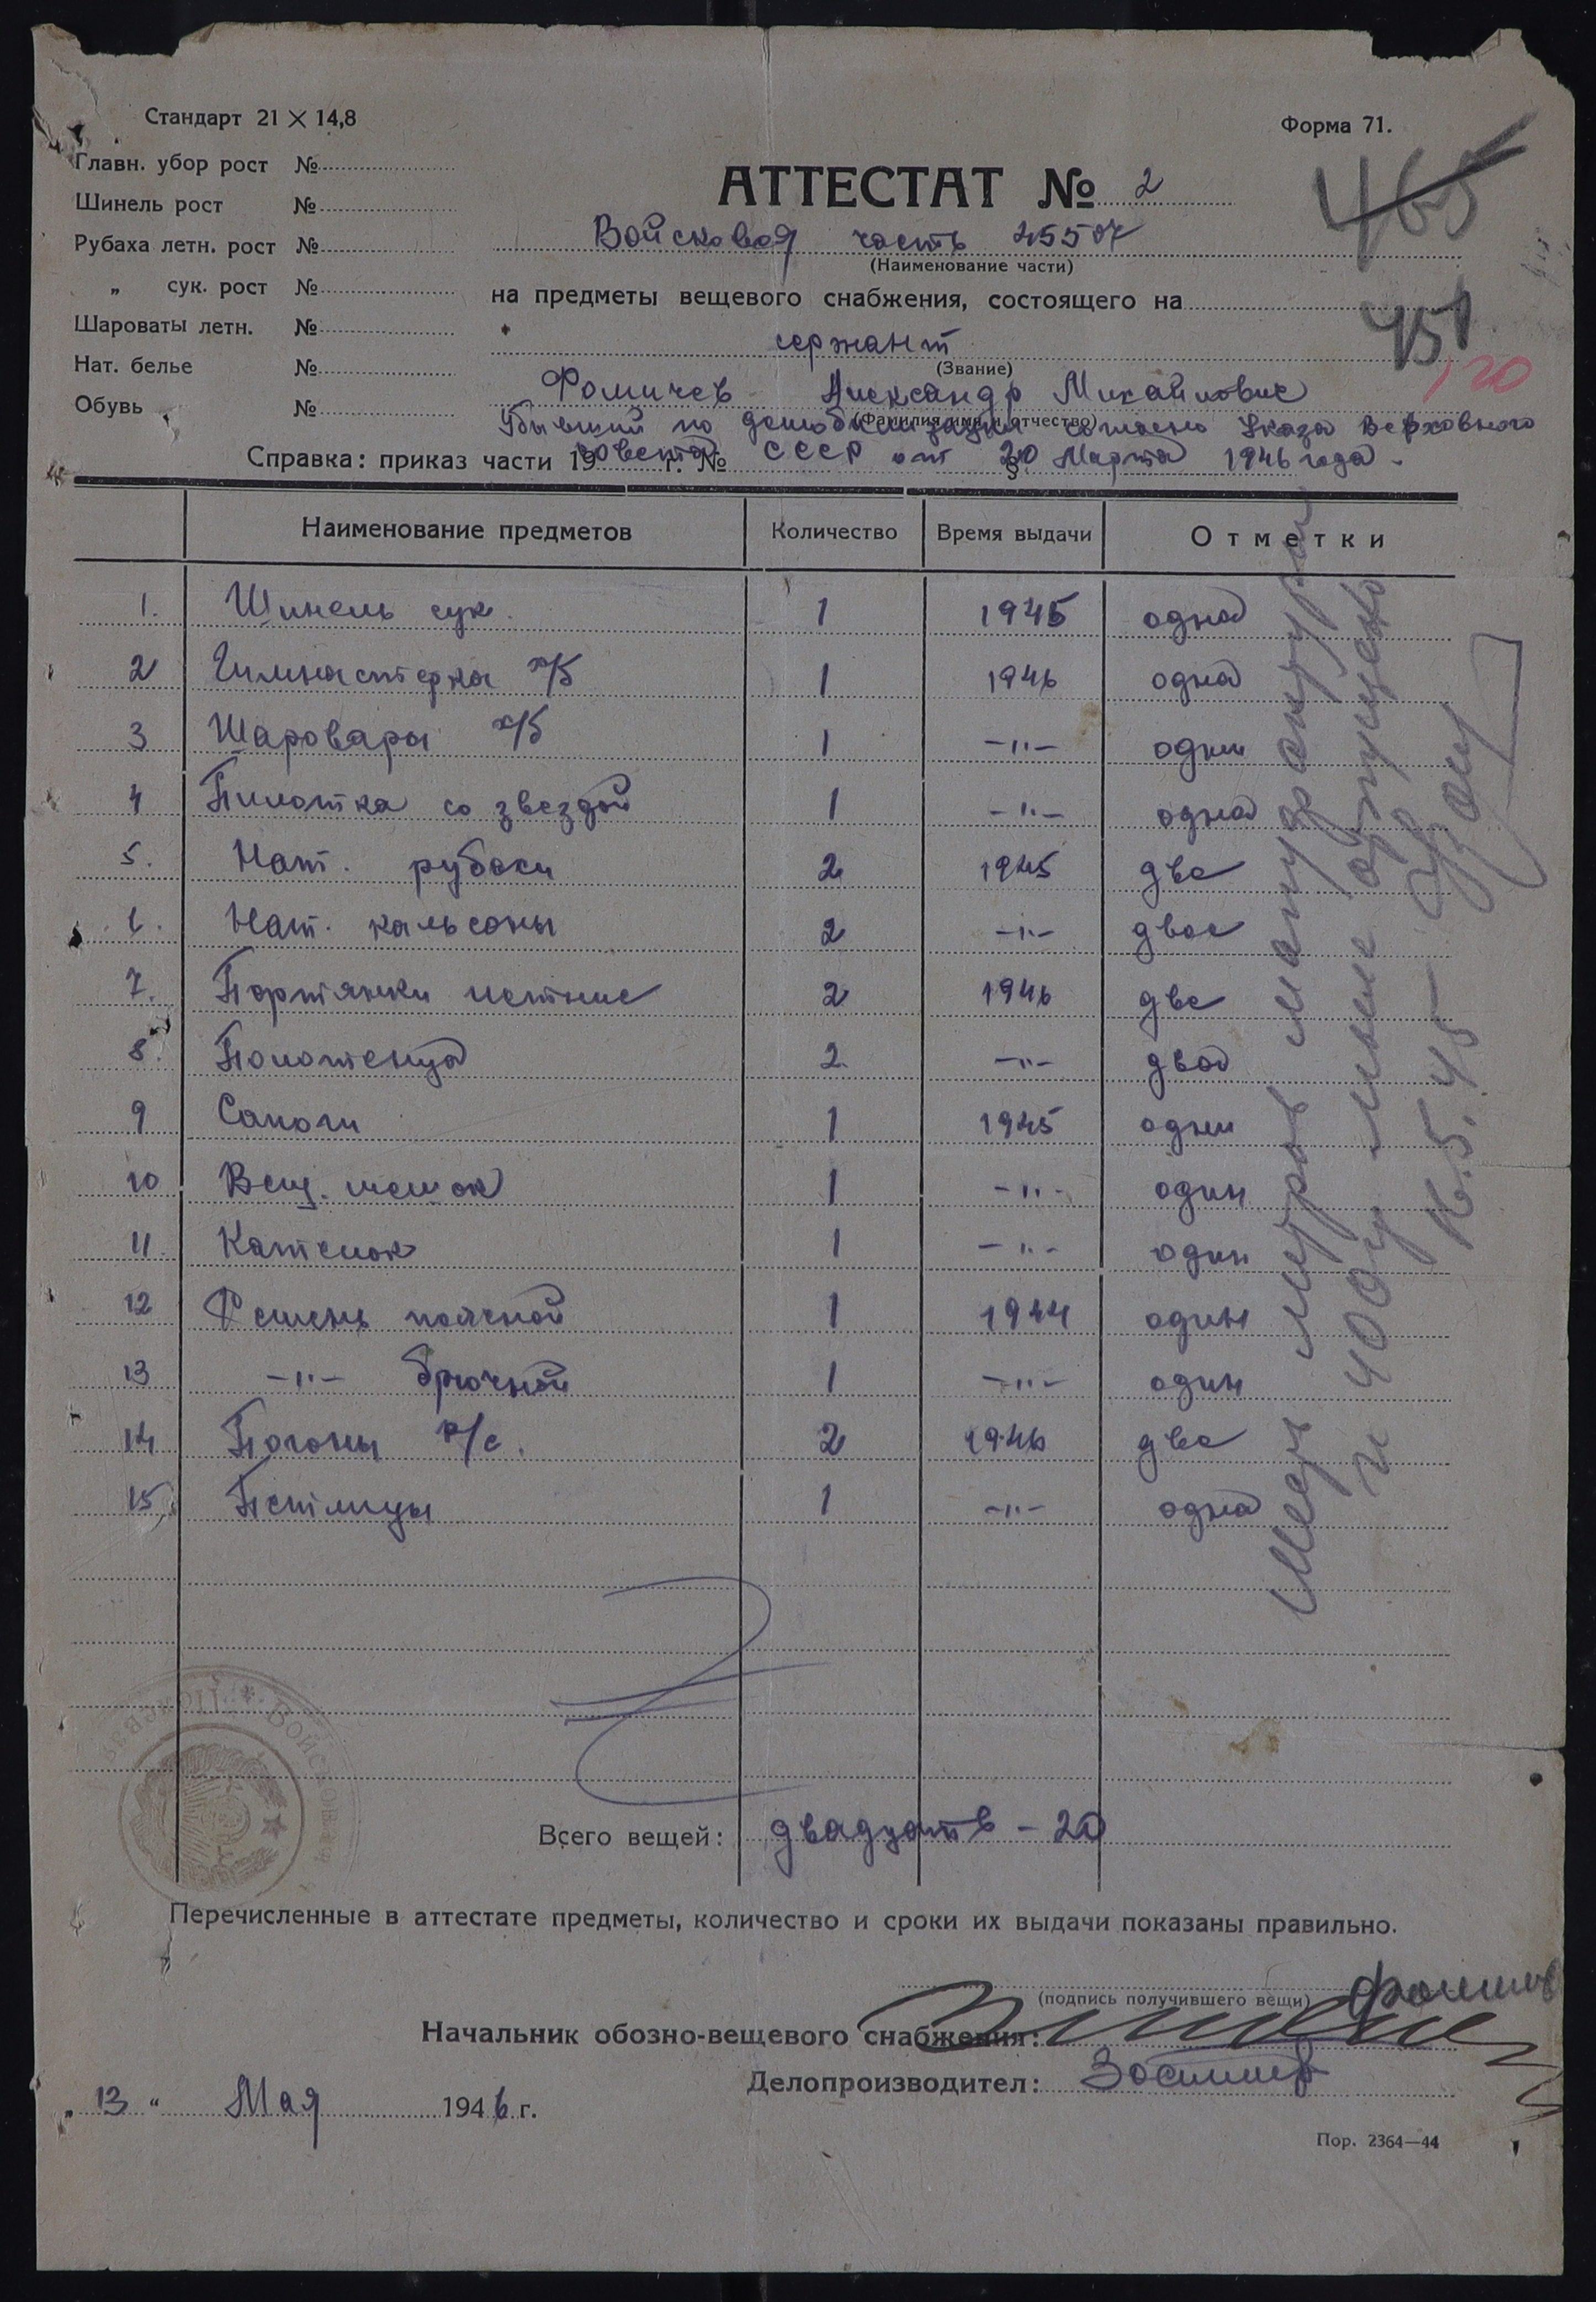 Стандарт 21 × 14,8
Форма 71.
Главн. убор рост №
Шинель рост №
Рубаха летн. рост №
„ сук. рост №
Шароваты летн. №
Нат. белье №
Обувь №
465
АТТЕСТАТ № 2
Войсковая часть 25507
(Наименование части)
на предметы вещевого снабжения, состоящего на
451
сержант
(Звание)
120
Фомичев Александр Михайлович
(Фамилия, имя и отчество)
Убывший по демобилизации согласно Указа Верховного
Справка: приказ части 19 г. № §
Совета СССР от 20 Марта 1946 года.
Наименование предметов Количество Время выдачи Отметки
1. Шинель сук. 1 1945 одна
2 Гимнастерка х/б 1 1946 одна
3 Шаровары х/б 1 -"- одни
4 Пилотка со звездой 1 -"- одна
5. Нат. рубахи 2 1945 две
6. Нат. кальсоны 2 -"- двое
7. Портянки летние 2 1946 две
8. Полотенца 2 -"- два
9 Сапоги 1 1945 одни
10 Вещ. мешок 1 -"- один
11. Котелок 1 -"- один
12 Ремень поясной 1 1944 один
13 -"- брючной 1 -"- один
14 Погоны р/с. 2 1946 две
15. Петлицы 1 -"- одна
метров мануфактуры
и 400 гр мыла
Всего вещей: двадцать – 20
Войсковая
Перечисленные в аттестате предметы, количество и сроки их выдачи показаны правильно.
(подпись получившего вещи) Фомичев
Начальник обозно-вещевого снабжения:
Делопроизводител:
13 " Мая 1946 г.
Пор. 2364—44